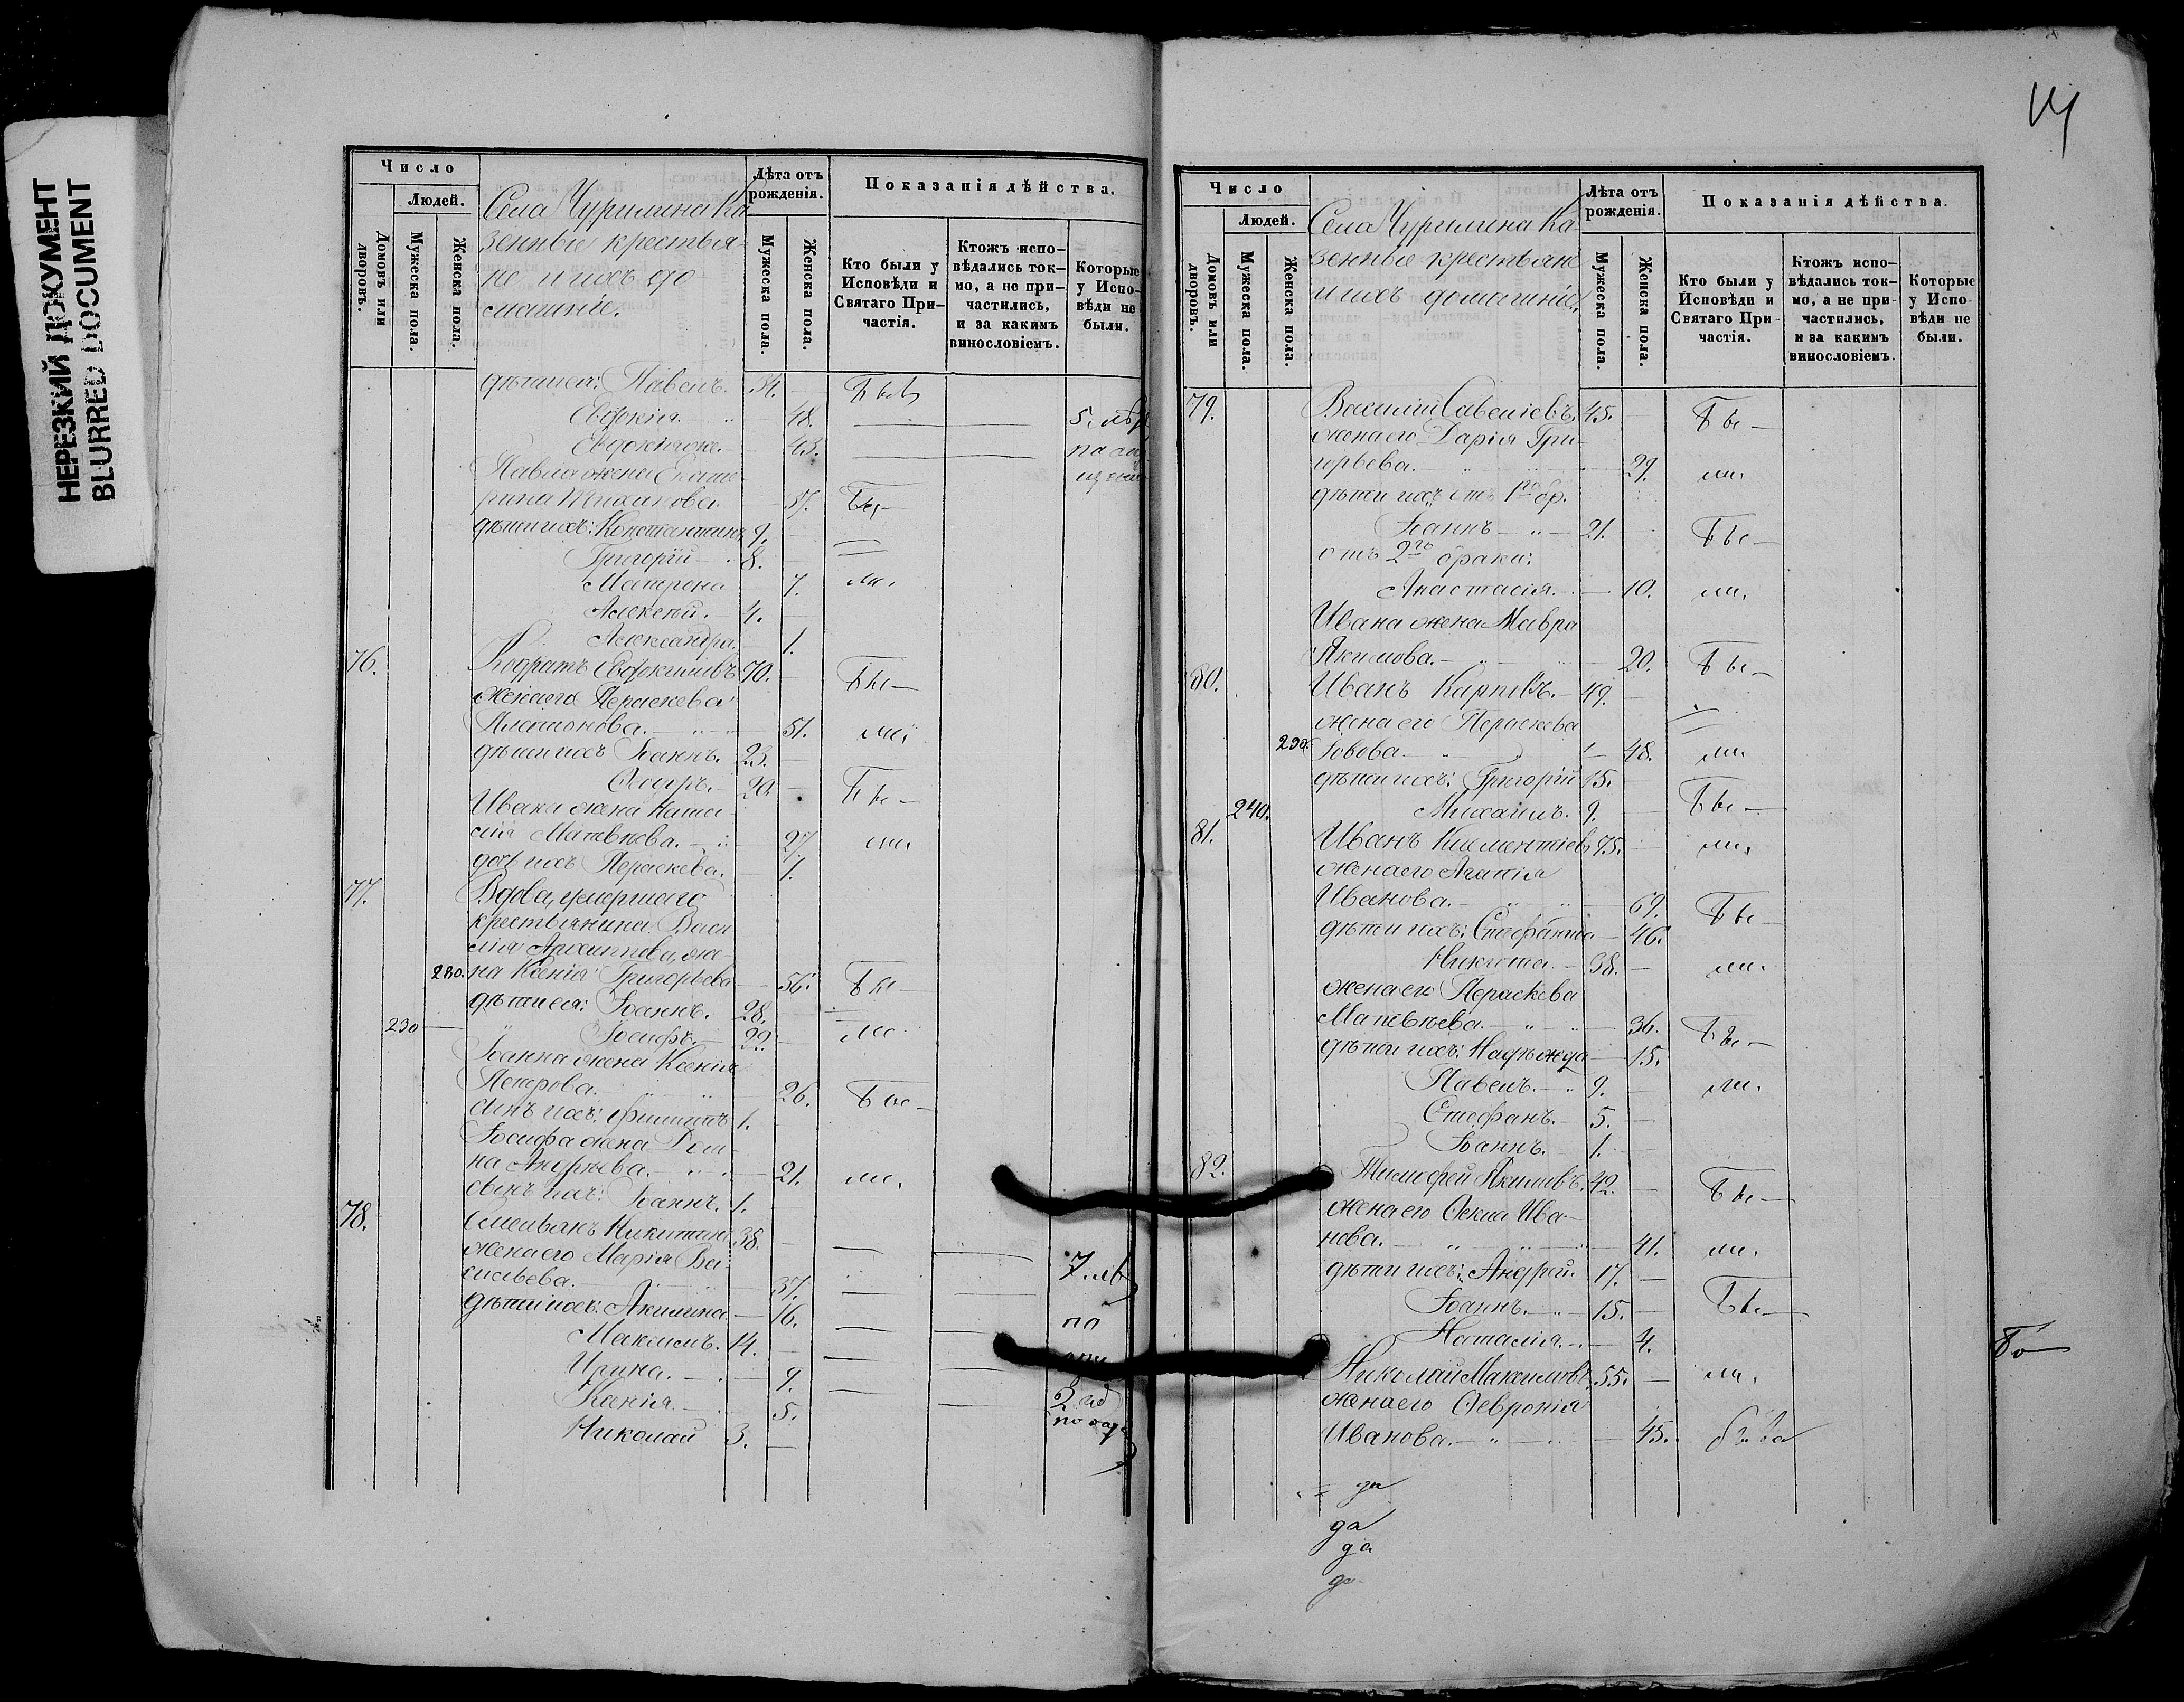 НЕРЕЗКИЙ ДОКУМЕНТ
BLURRED DOCUMENT
Число
Людей.
Домовъ или дворовъ.
Мужеска пола.
Женска пола.
Села Чурилина Ка
зенные крестья-
не и ихъ до
машніе.
Лѣта отъ рожденія.
Мужеска пола.
Женска пола.
Показанія дѣйства.
Кто были у Исповѣди и Святаго При-частія.
Ктожъ испо-вѣдались ток-мо, а не при-частились, и за какимъ винословіемъ.
Которые у Испо-вѣди не были.
дѣти ея: Павелъ. 34.
Евдокія 48. 5.
Евдокія же. 43. по
Павла жена Екате-
рина Тихонова. 37.
дѣти ихъ: Константинъ 9.
Григорій 8.
Матрона 7.
Алексѣй. 4.
Александра. 1.
76. Кодратъ Евдокимовъ 70.
жена его Параскева
Платонова. 51.
дѣти ихъ Іоаннъ. 23.
20.
Ивана жена Ната-
лія Матвѣева. 27.
дочь ихъ Параскева. 1.
77. Вдова, умершаго
крестьянина Васи-
лія Архиппова, же-
230. на Ксенія Григорьева 56.
дѣти ея: Іоаннъ. 28.
230 Іосифъ. 22.
Іоанна жена Ксенія
Петрова. 26.
сынъ ихъ: Филиппъ 1.
Іосифа жена Дом-
на Андреева. 21.
сынъ ихъ: Іоаннъ. 1.
78. Емельянъ Никитинъ 38.
жена его Марія Ва-
сильева. 37. 7.
дѣти ихъ: Акилина 16. по
Максимъ. 14.
Ирина. 9.
Ксенія. 5. 2
Николай 3. по
Число
Людей.
Домовъ или дворовъ.
Мужеска пола.
Женска пола.
Села Чурилина Ка-
зенные крестьяне
и ихъ домашніе.
Лѣта отъ рожденія.
Мужеска пола.
Женска пола.
Показанія дѣйства.
Кто были у Исповѣди и Святаго При-частія.
Ктожъ испо-вѣдались ток-мо, а не при-частились, и за какимъ винословіемъ.
Которые у Испо-вѣди не были.
79. Василій Савеліевъ 45.
жена его Дарія Гри-
горьева. 29.
дѣти ихъ отъ 1го бр.
Іоаннъ 21.
отъ 2го брака:
Анастасія. 10.
Ивана жена Мавра
Якимова. 20.
80. Иванъ Карповъ. 49.
жена его Параскева
230. Іовова. 48.
дѣти ихъ: Григорій 15.
240. Михаилъ. 9.
81. Иванъ Климентіевъ 75.
жена его Агапія
Иванова. 69.
дѣти ихъ: Стефанида 46.
Никита. 38.
жена его Параскева
Матвѣева. 36.
дѣти ихъ: Надѣжда 15.
Павелъ. 9.
Стефанъ. 5.
Іоаннъ. 1.
82. Тимофей Якимовъ. 42.
жена его Ѳекла Ива-
нова. 41.
дѣти ихъ: Андрей. 17.
Іоаннъ. 15.
Наталія. 4.
Николай Максимовъ 55.
жена его Ѳевронія
Иванова. 45.
да
да
да